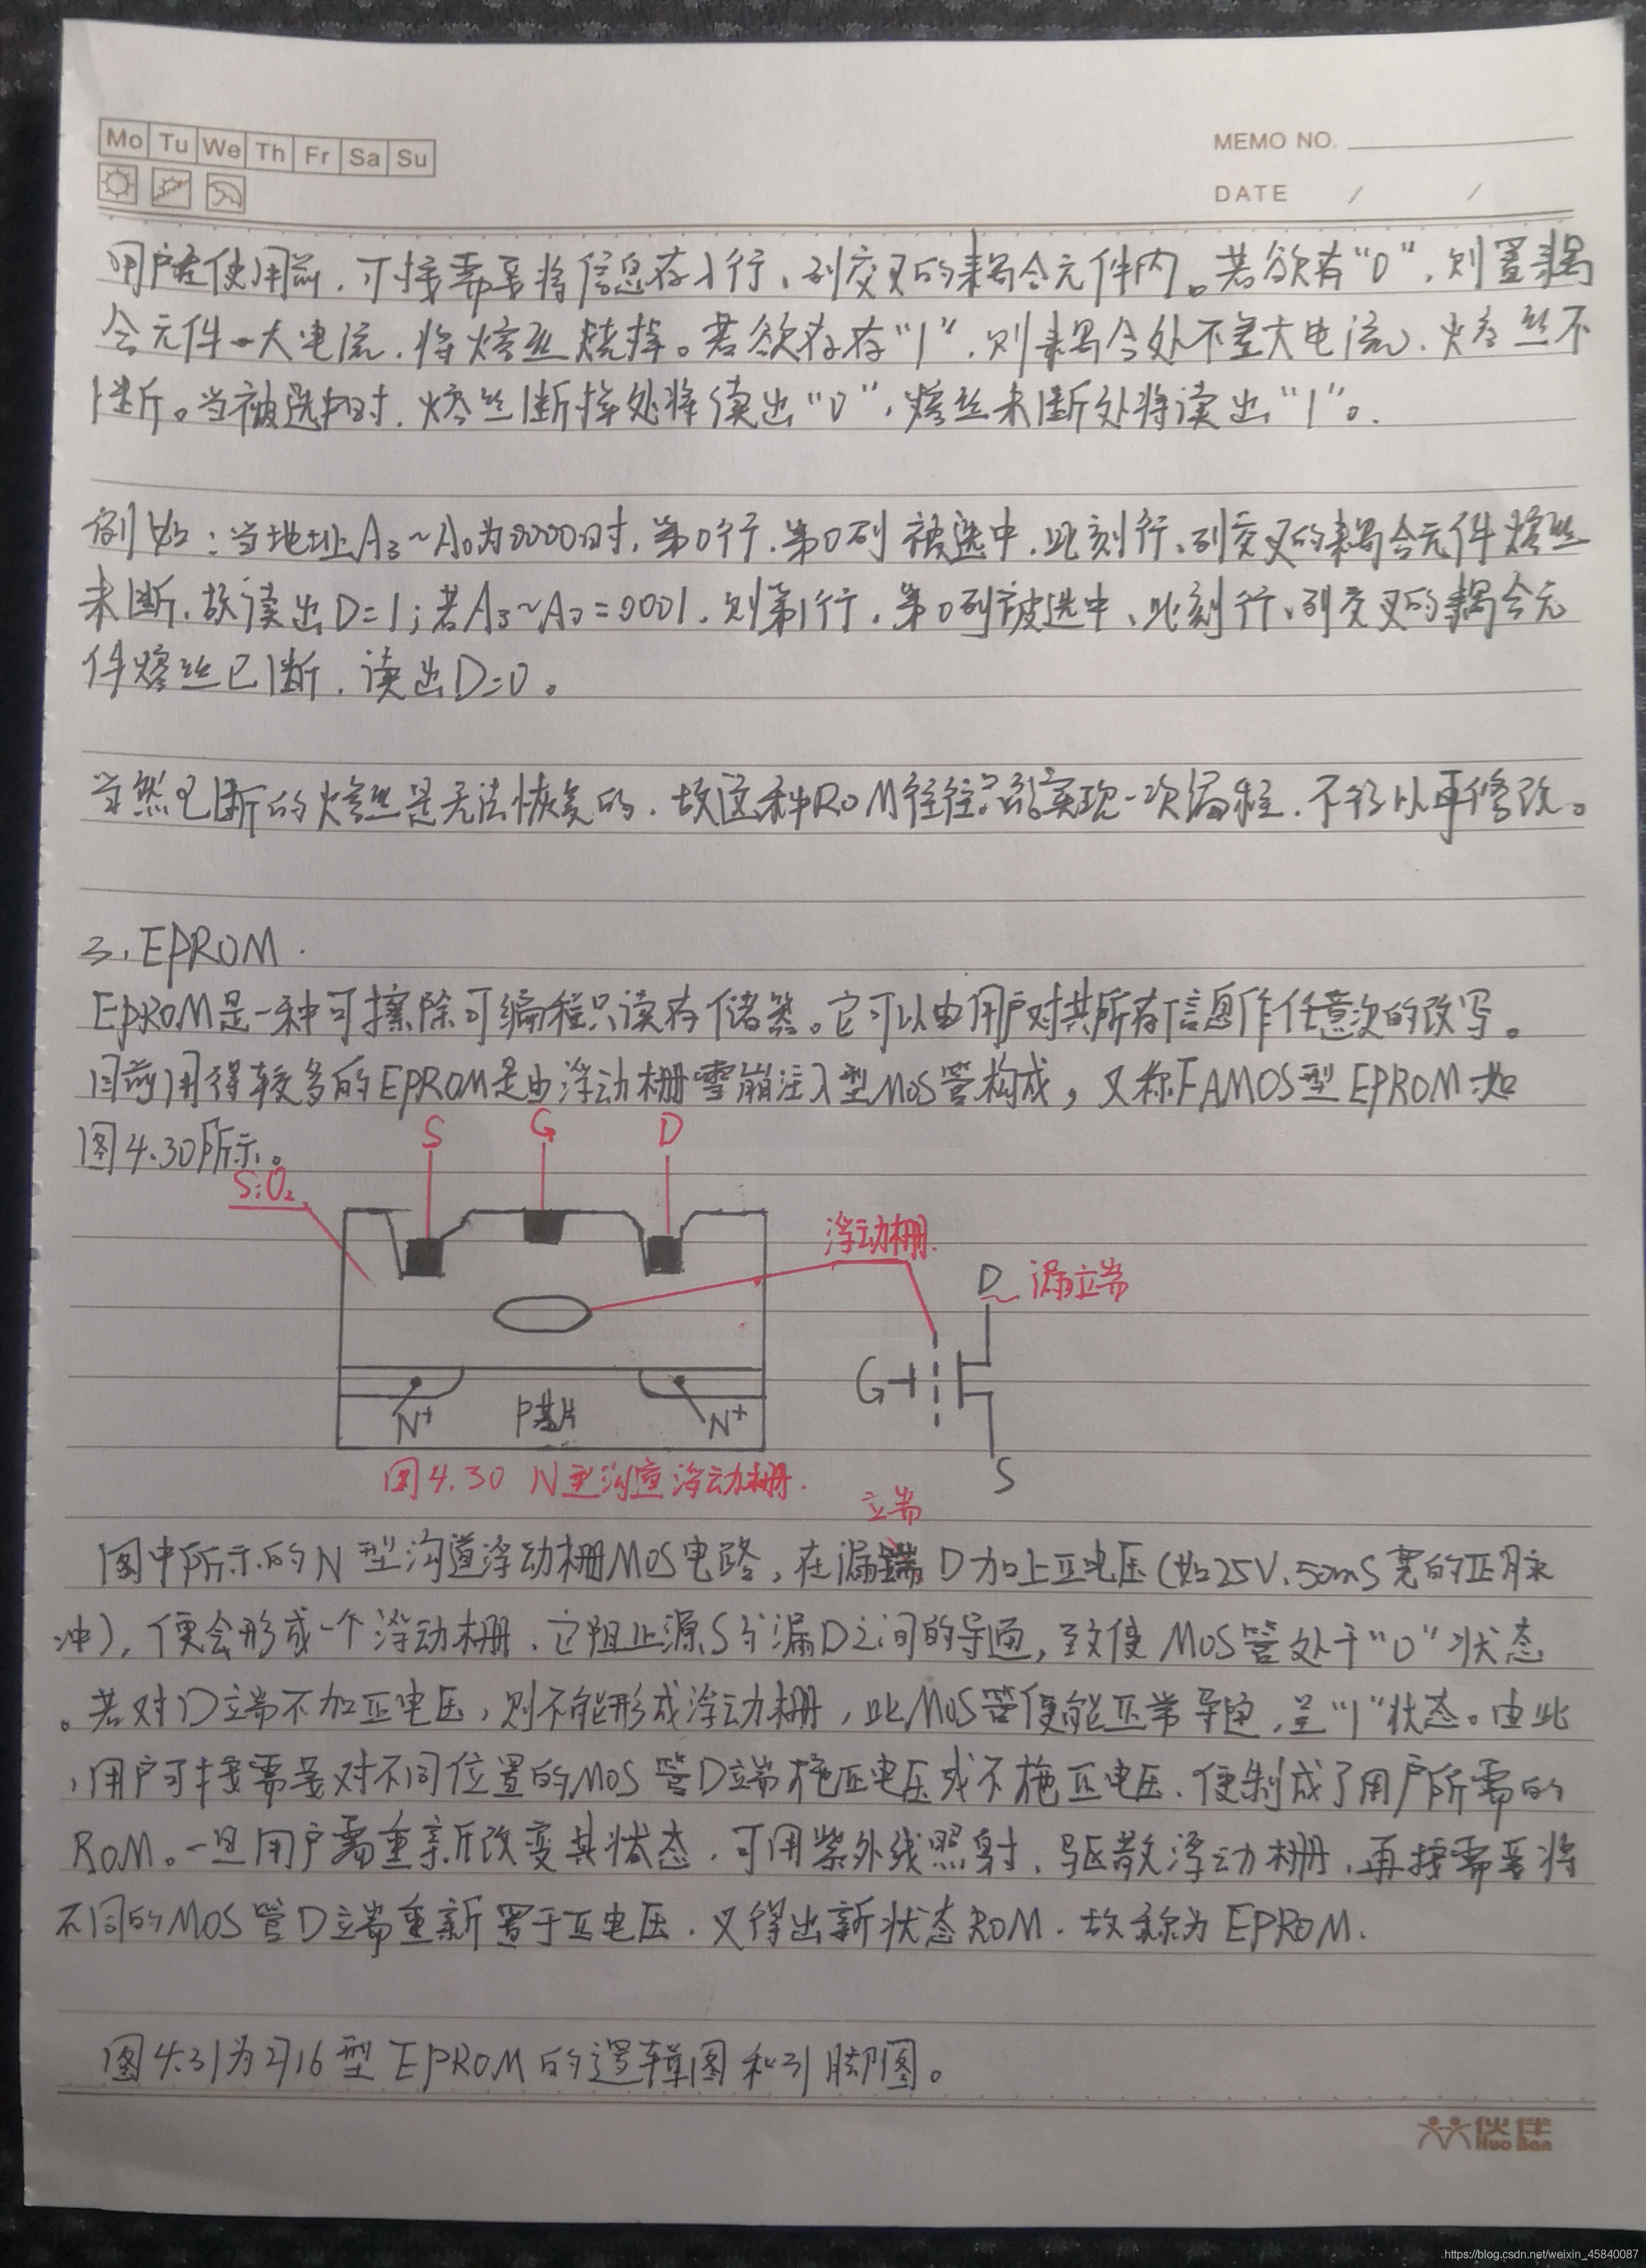 Mo Tu We Th Fr Sa Su
MEMO NO.
DATE / /
用户在使用前，可按需要将信息存入行、列交叉的耦合元件内。若欲存“0”，则置耦
合元件一大电流，将熔丝烧掉。若欲存存“1”，则耦合处不置大电流，熔丝不
断。当被选中时，熔丝断掉处将读出“0”，熔丝未断处将读出“1”。
例如：当地址A3~A0为0000时，第0行、第0列被选中，此刻行、列交叉的耦合元件熔丝
未断，故读出D=1；若A3~A0=0001，则第1行，第0列被选中、此刻行、列交叉的耦合元
件熔丝已断，读出D=0。
当然已断的熔丝是无法恢复的，故这种ROM往往只能实现一次编程，不得以再修改。
3、EPROM.
EPROM是一种可擦除可编程只读存储器。它可以由用户对其所有信息作任意次的改写。
目前用得较多的EPROM是由浮动栅雪崩注入型MOS管构成，又称FAMOS型EPROM如
图4.30所示。
S G D
SiO2
浮动栅
D 漏立端
G
N+ P基片 N+
S
图4.30 N型沟道浮动栅.
立端
图中所示的N型沟道浮动栅MOS电路，在漏端D加上正电压（如25V、50mS宽的正脉
冲），便会形成一个浮动栅，它阻止源S与漏D之间的导通，致使MOS管处于“0”状态
。若对D立端不加正电压，则不能形成浮动栅，此MOS管便能正常导通，呈“1”状态。由此
，用户可按需要对不同位置的MOS管D立端施正电压或不施正电压，便制成了用户所需的
ROM。一旦用户需重新改变其状态，可用紫外线照射，驱散浮动栅，再按需要将
不同的MOS管D立端重新置于正电压，又得出新状态ROM.故称为EPROM.
图4.31为2716型EPROM的逻辑图和引脚图。
伙伴
Huo Ban
https://blog.csdn.net/weixin_45840087